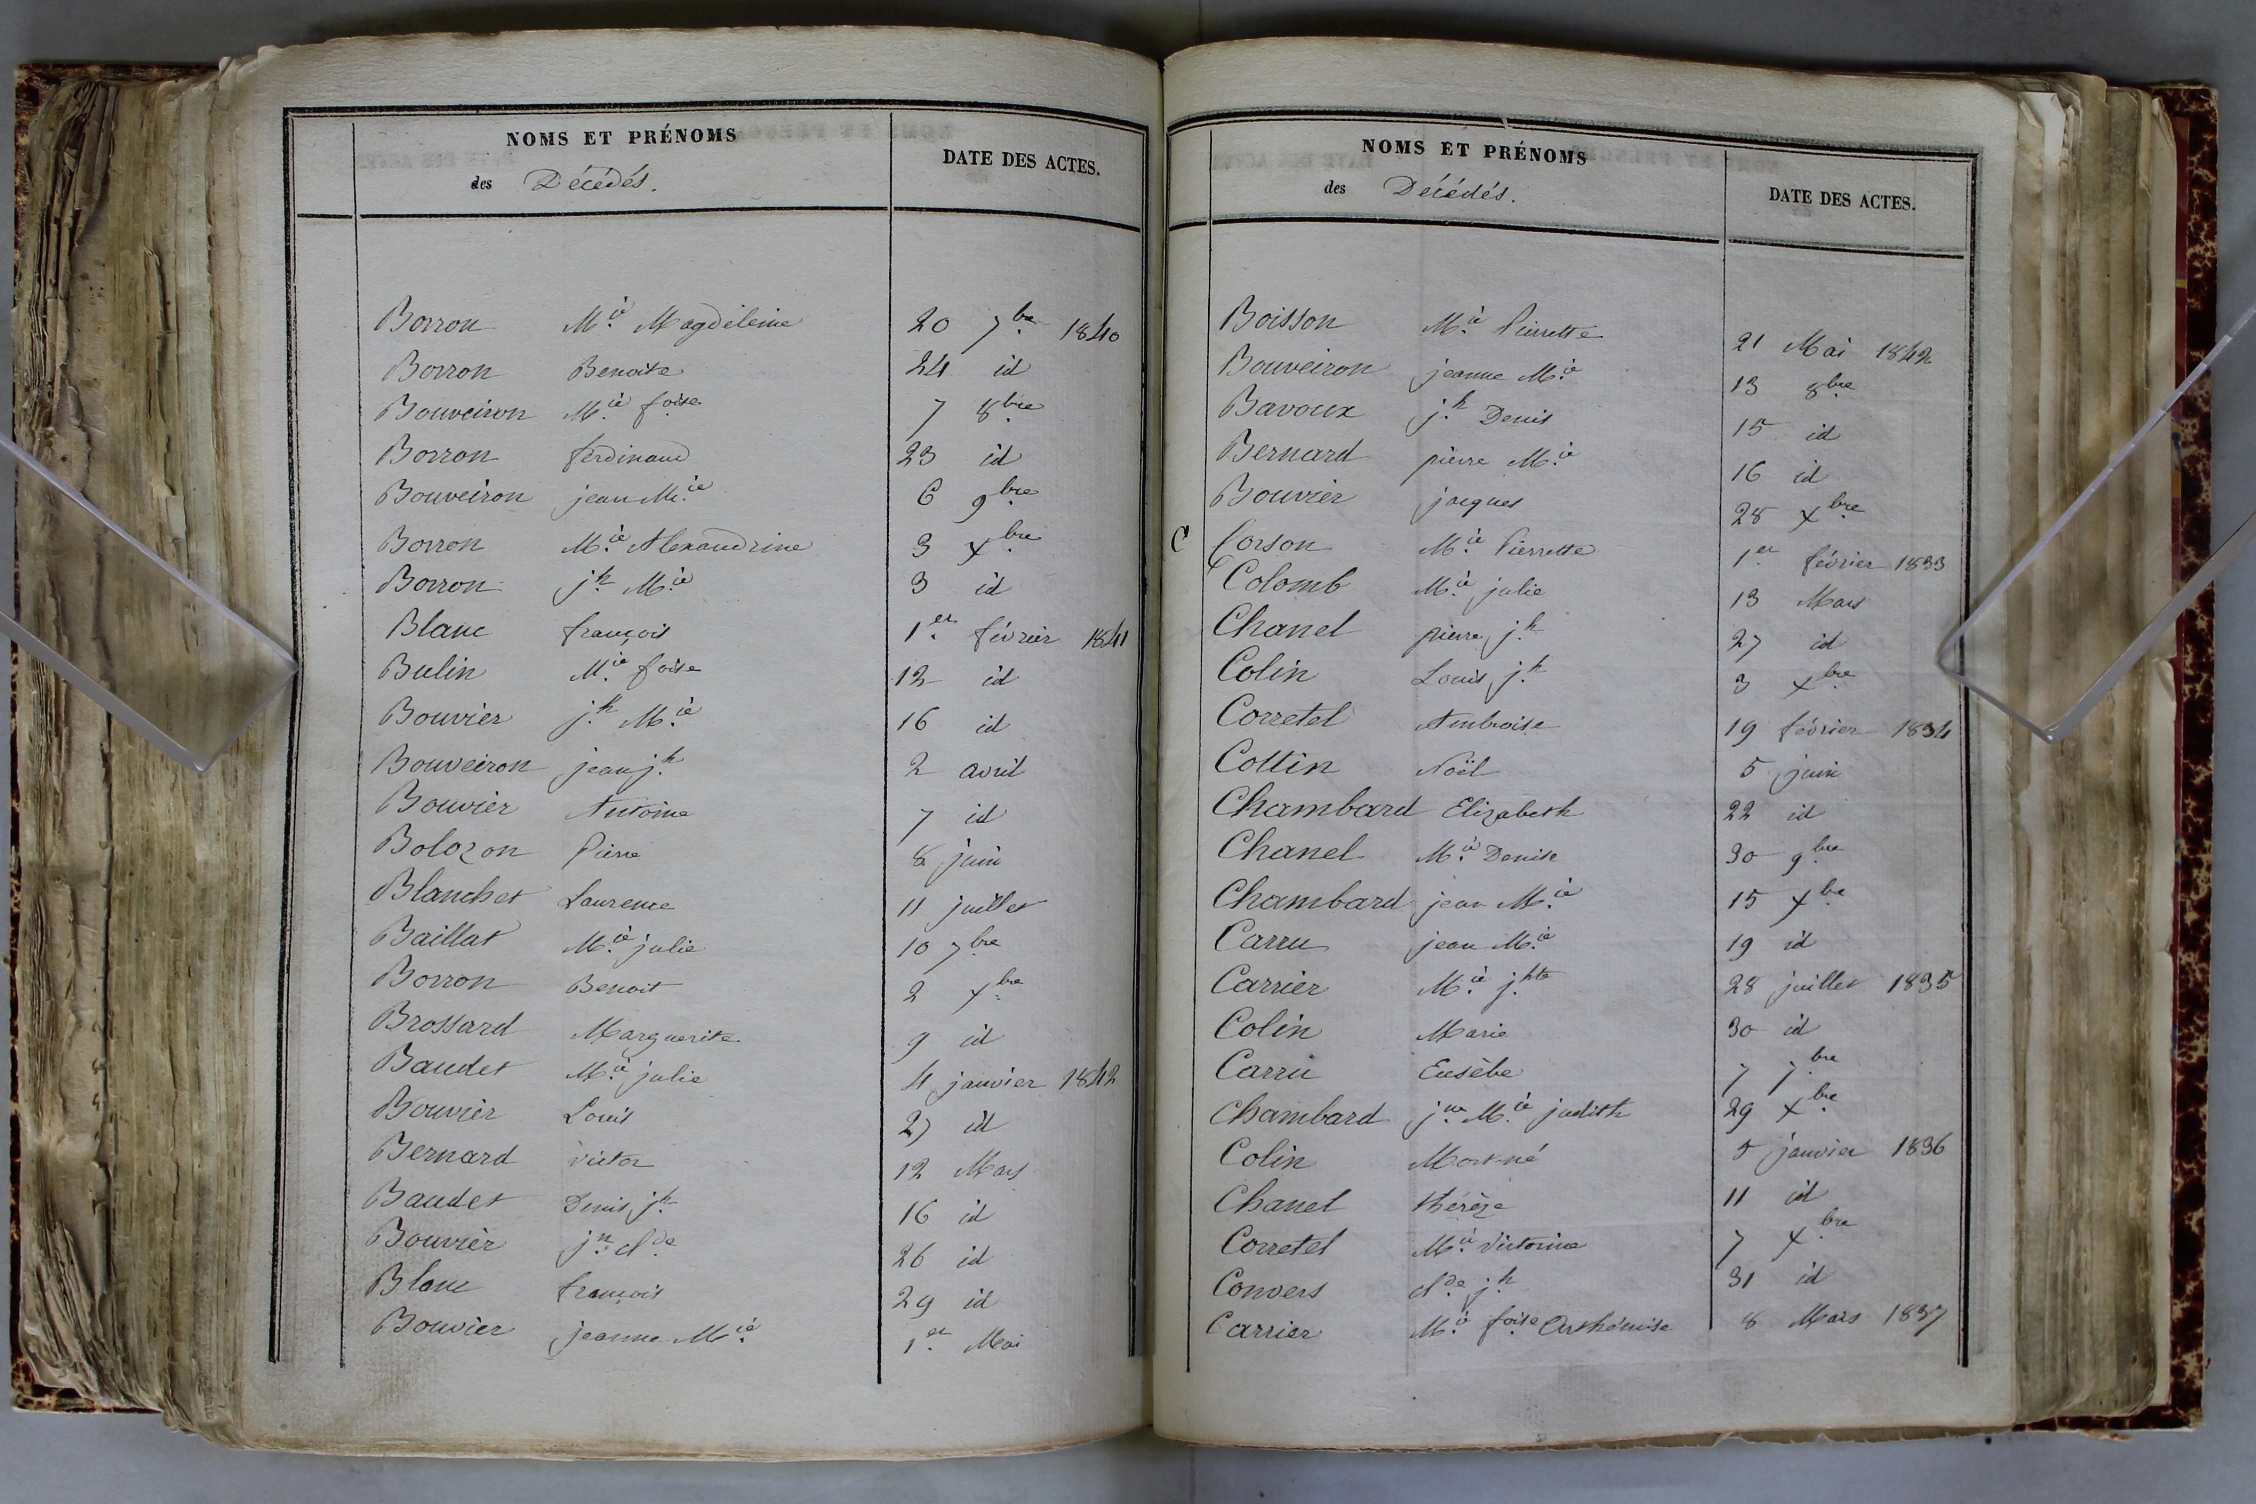 NOMS ET PRÉNOMS
des Décédés.
DATE DES ACTES.
Borron M.ie Magdeleine 20 7bre 1840
Borron Benoite 24 id
Bouveiron M.ie foise 7 8bre
Borron ferdinand 23 id
Bouveiron jean M.ie 6 9bre
Borron M.ie Alexandrine 3 Xbre
Borron j.h M.ie 3 id
Blanc françois 1er février 1841
Bulin M.ie foise 12 id
Bouvier j.h M.ie 16 id
Bouveiron jean j.h 2 avril
Bouvier Antoine 7 id
Bolozon Pierre 8 juin
Blanchet Laurence 11 juillet
Baillat M.ie julie 10 7bre
Borron Benoit 2 Xbre
Brossard Marguerite 9 id
Baudet M.ie julie 4 janvier 1842
Bouvier Louis 27 id
Bernard victor 12 Mars
Baudet Denis j.h 16 id
Bouvier j.n cl.de 26 id
Blanc françois 29 id
Bouvier jeanne M.ie 1er Mai
NOMS ET PRÉNOMS
des Décédés.
DATE DES ACTES.
Boisson M.ie Pierrette 21 Mai 1842
Bouveiron jeanne M.ie 13 8bre
Bavoux j.h Denis 15 id
Bernard pierre M.ie 16 id
Bouvier jacques 28 Xbre
C Corson M.ie Pierrette 1er février 1833
Colomb M.ie julie 13 Mars
Chanel pierre j.h 27 id
Colin Louis j.h 3 Xbre
Corretel Ambroise 19 février 1834
Cottin Noël 5 juin
Chambard Elizabeth 22 id
Chanel M.ie Denise 30 9bre
Chambard jean M.ie 15 Xbre
Carru jean M.ie 19 id
Carrier M.ie j.hte 28 juillet 1835
Colin Marie 30 id
Carru Eusèbe 7 7bre
Chambard j.ne M.ie judith 29 Xbre
Colin Mort-né 5 janvier 1836
Chanel thérèze 11 id
Corretel M.ie Victorine 7 Xbre
Convers cl.de j.h 31 id
Carrier M.ie foise Arthémise 8 Mars 1837